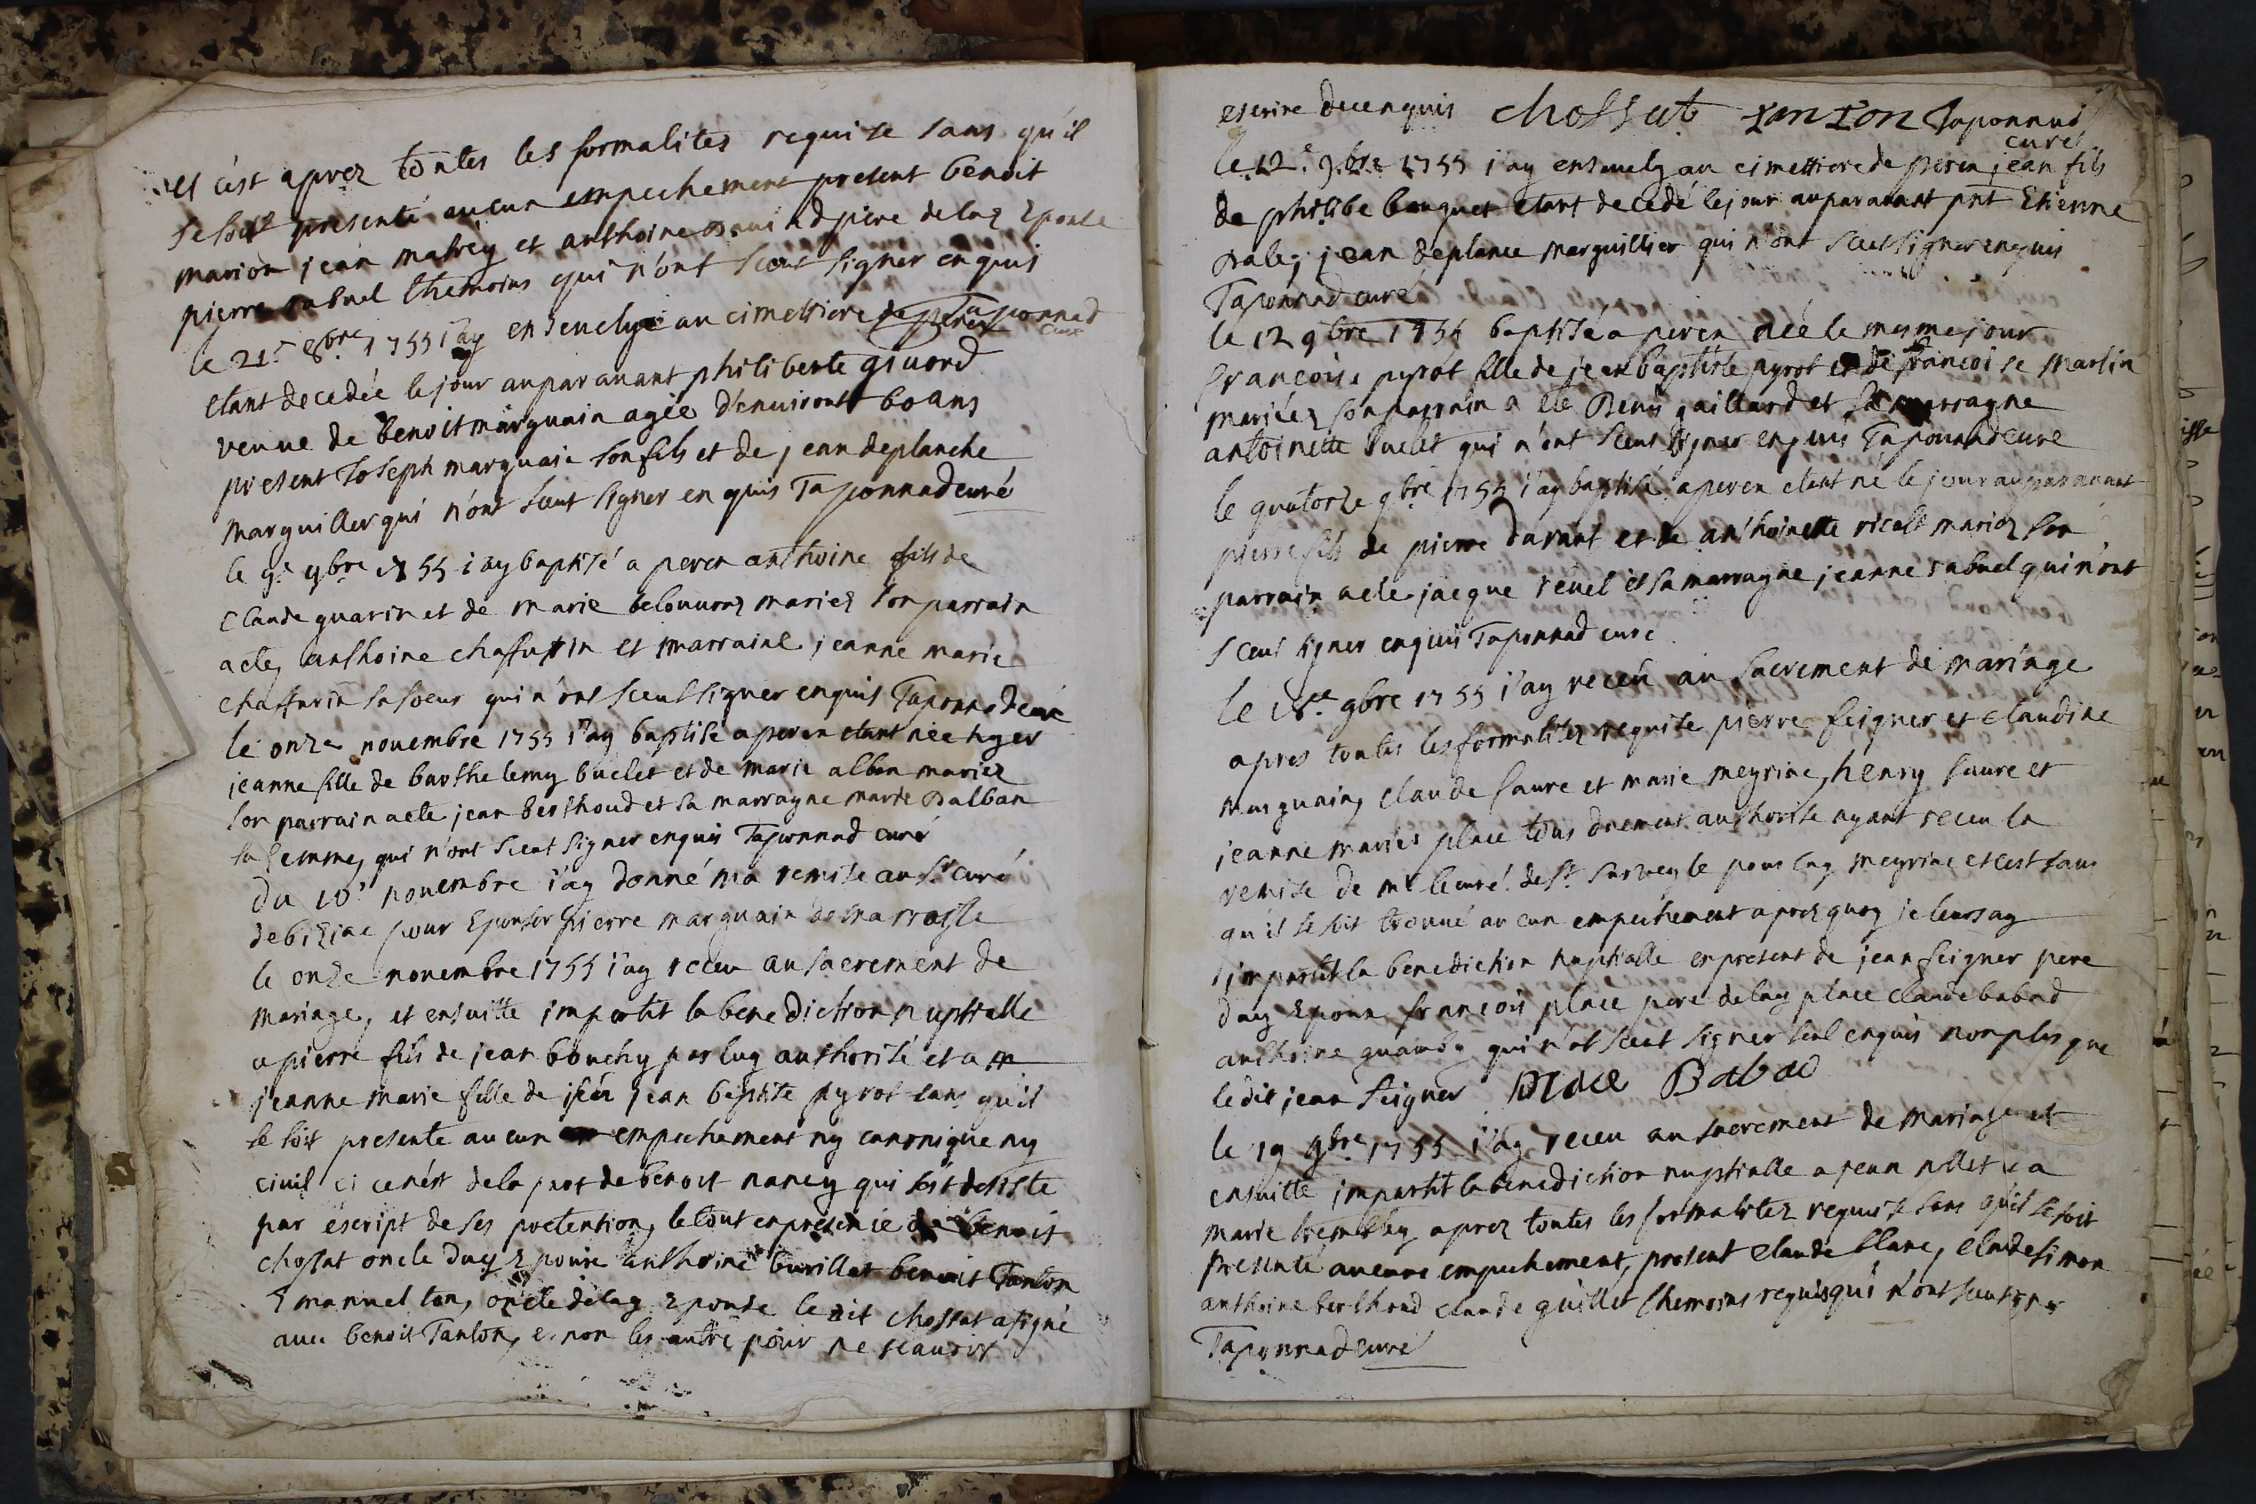 et c'est aprez toutes les formalites requise sans qu'il
se soit presenté aucun empechement present benoit
marion jean matrey et anthoine pere de lad epouse
pierre rabuel themoins qui n'ont sceut signer enquis
Taponnad curé
le 21e 8bre 1755 i'ay ensevelye au cimettiere de peren
etant decedée le jour auparavant philiberte givord
veuve de benoit marguain agée d'environt 60 ans
present Joseph marguain son fils et de jean deplanche
marguiller qui n'ont sceut signer enquis Taponnad curé
le 9e 9bre 1755 i'ay baptisé a peren anthoine fils de
Claude guarin et de marie belouvrez mariez son parrain
a ete anthoine chaffurin et marraine jeanne marie
chaffurin sa soeur qui n'ont sceut signer enquis Taponnad curé
le onze novembre 1755 i'ay baptise a peren etant née hyer
jeanne fille de barthelemy buclet et de marie alban mariez
son parrain a ete jean berthoud et sa marragne marie Dalban
sa femme, qui n'ont sceut signer enquis Taponnad curé
Du 10e novembre i'ay donné ma remise au Sr curé
de biziac pour Epouser pierre marguain de ma
le onze novembre 1755 i'ay receu au sacrement de
mariage, et ensuitte impartit la benediction nuptialle
a pierre fils de jean bouchy par luy authorisé et a m
jeanne marie fille de jean baptiste pyrot sans qu'il
se soit presente aucun empechement ny canonique ny
civil ci cenést de la part de benoit nancy qui sést desiste
par escript de ses pretention, le tout en presence de benoit
chossat oncle duq epoux anthoine burillat benoit Tanton
Emanuel ton, oncle de lag epouse ledit chossat a signé
avec benoit Tanton, e non les autre pour ne scavoir
escrire de ce enquis chossat tanton Taponnad
curé
le 12e 9bre 1755 i'ay ensevely au cimettiere de peren jean fils
de philibe bouquet etant decedé le jour auparavant pnt Etienne
jean deplance marguillier qui n'ont sceut signer enquis
Taponnad curé
le 12 9bre 1755 baptisé a peren née le mesme jour
francoise pyrot fille de jean baptiste pyrot et de francoise martin
mariéez son parrain a été Denis gaillard et sa marragne
antoinette buclet qui n'ont sceut signer enquis Taponnad curé
le quatorze 9bre 1755 i'ay baptisé a peren etant né le jour auparavant
pierre fils de pierre durant et de anthoinette ricolt mariez son
parrain a ete jacque revel et sa marragne jeanne rabuel qui n'ont
sceut signer enquis Taponnad curé
le 18e 9bre 1755 i'ay receu au sacrement de mariage
apres toutes les formalitez requise pierre feigner et claudine
marguain, claude faure et marie meyrine, henry faure et
jeanne mariés place tous duement authorise ayant receu la
remise de mr le curé de st pour lag meyrine et cest sans
qu'il se soit trouvé aucun empechement apres quoy je leurs ay
impartit la benediction nuptialle en present de jean feigner pere
duq Epoux francois place pere de lag place claude babad
anthoine qui n'ot sceut signer seul enquis non plus que
ledit jean feigner place Babad
le 19 9bre 1755 i'ay receu au sacrement de mariage et
ensuitte impartit la benediction nuptialle a jean et a
marie aprez toutes les formalitez requise sans qu'il se soit
presente aucune empechement, present claude blanc, claude simon
anthoine berthoud claude guillet themoins requis qui n'ont sceut signer
Taponnad curé